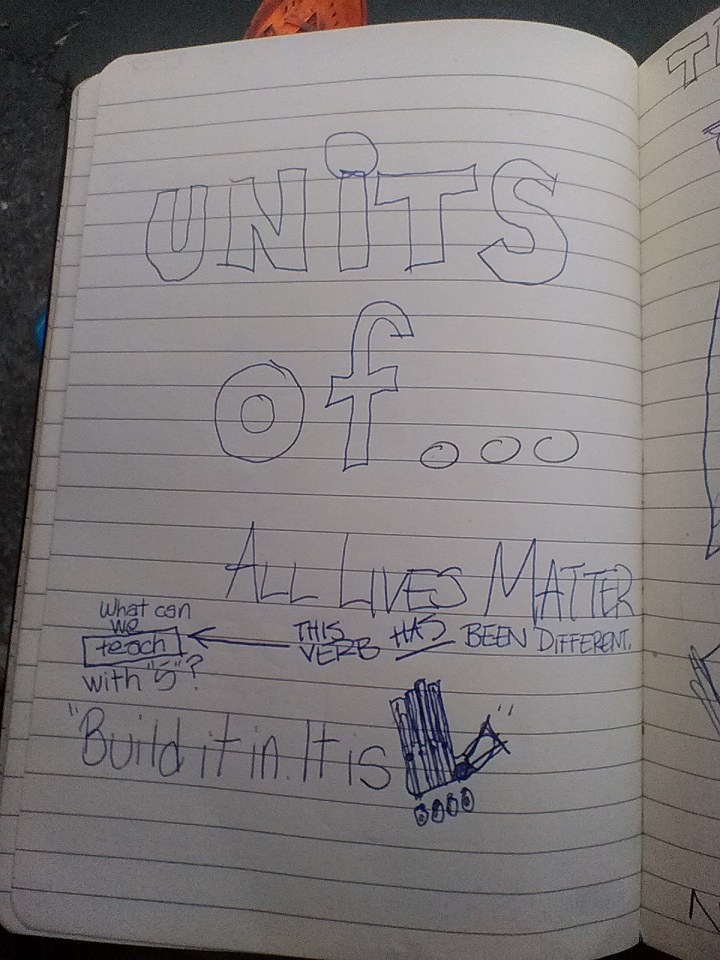 UNiTS
of...
ALL LIVES MATTER
what can
we
teach
with "5"?
THIS
VERB HAS BEEN DIFFERENT.
"Build it in. It is "
T
N